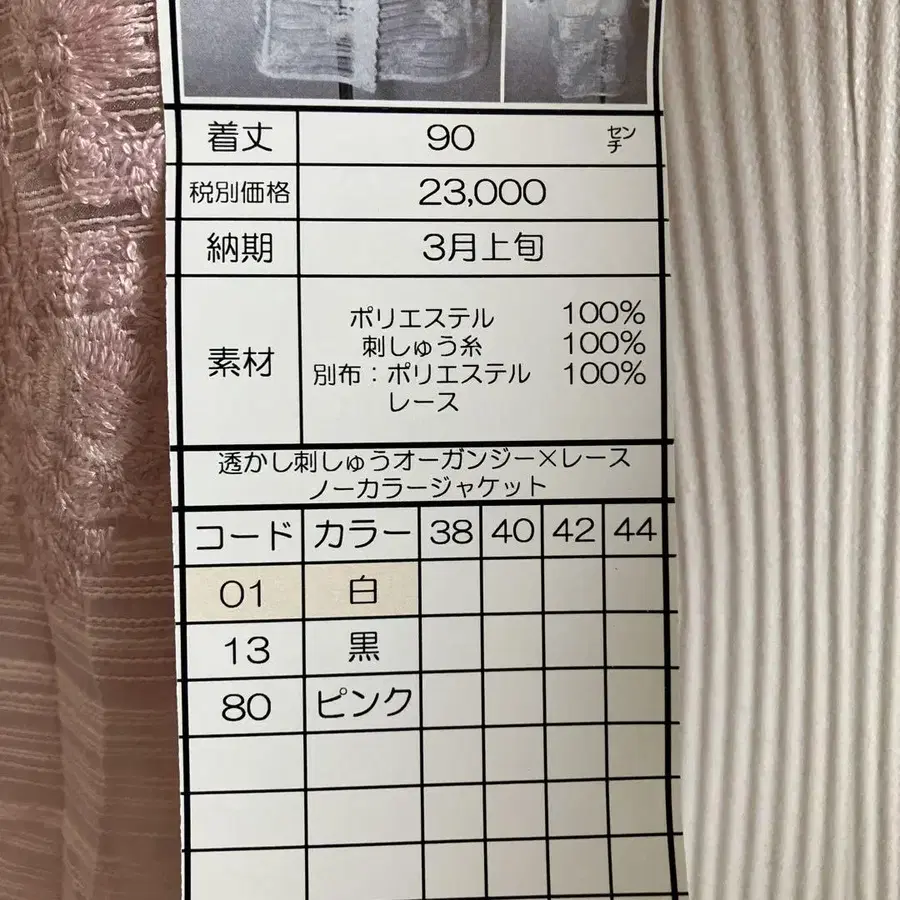 着丈 90 センチ
税別価格 23,000
納期 3月上旬
素材
ポリエステル 100%
刺しゅう糸 100%
別布：ポリエステル 100%
レース
透かし刺しゅうオーガンジー×レース
ノーカラージャケット
コード カラー 38 40 42 44
01 白
13 黒
80 ピンク